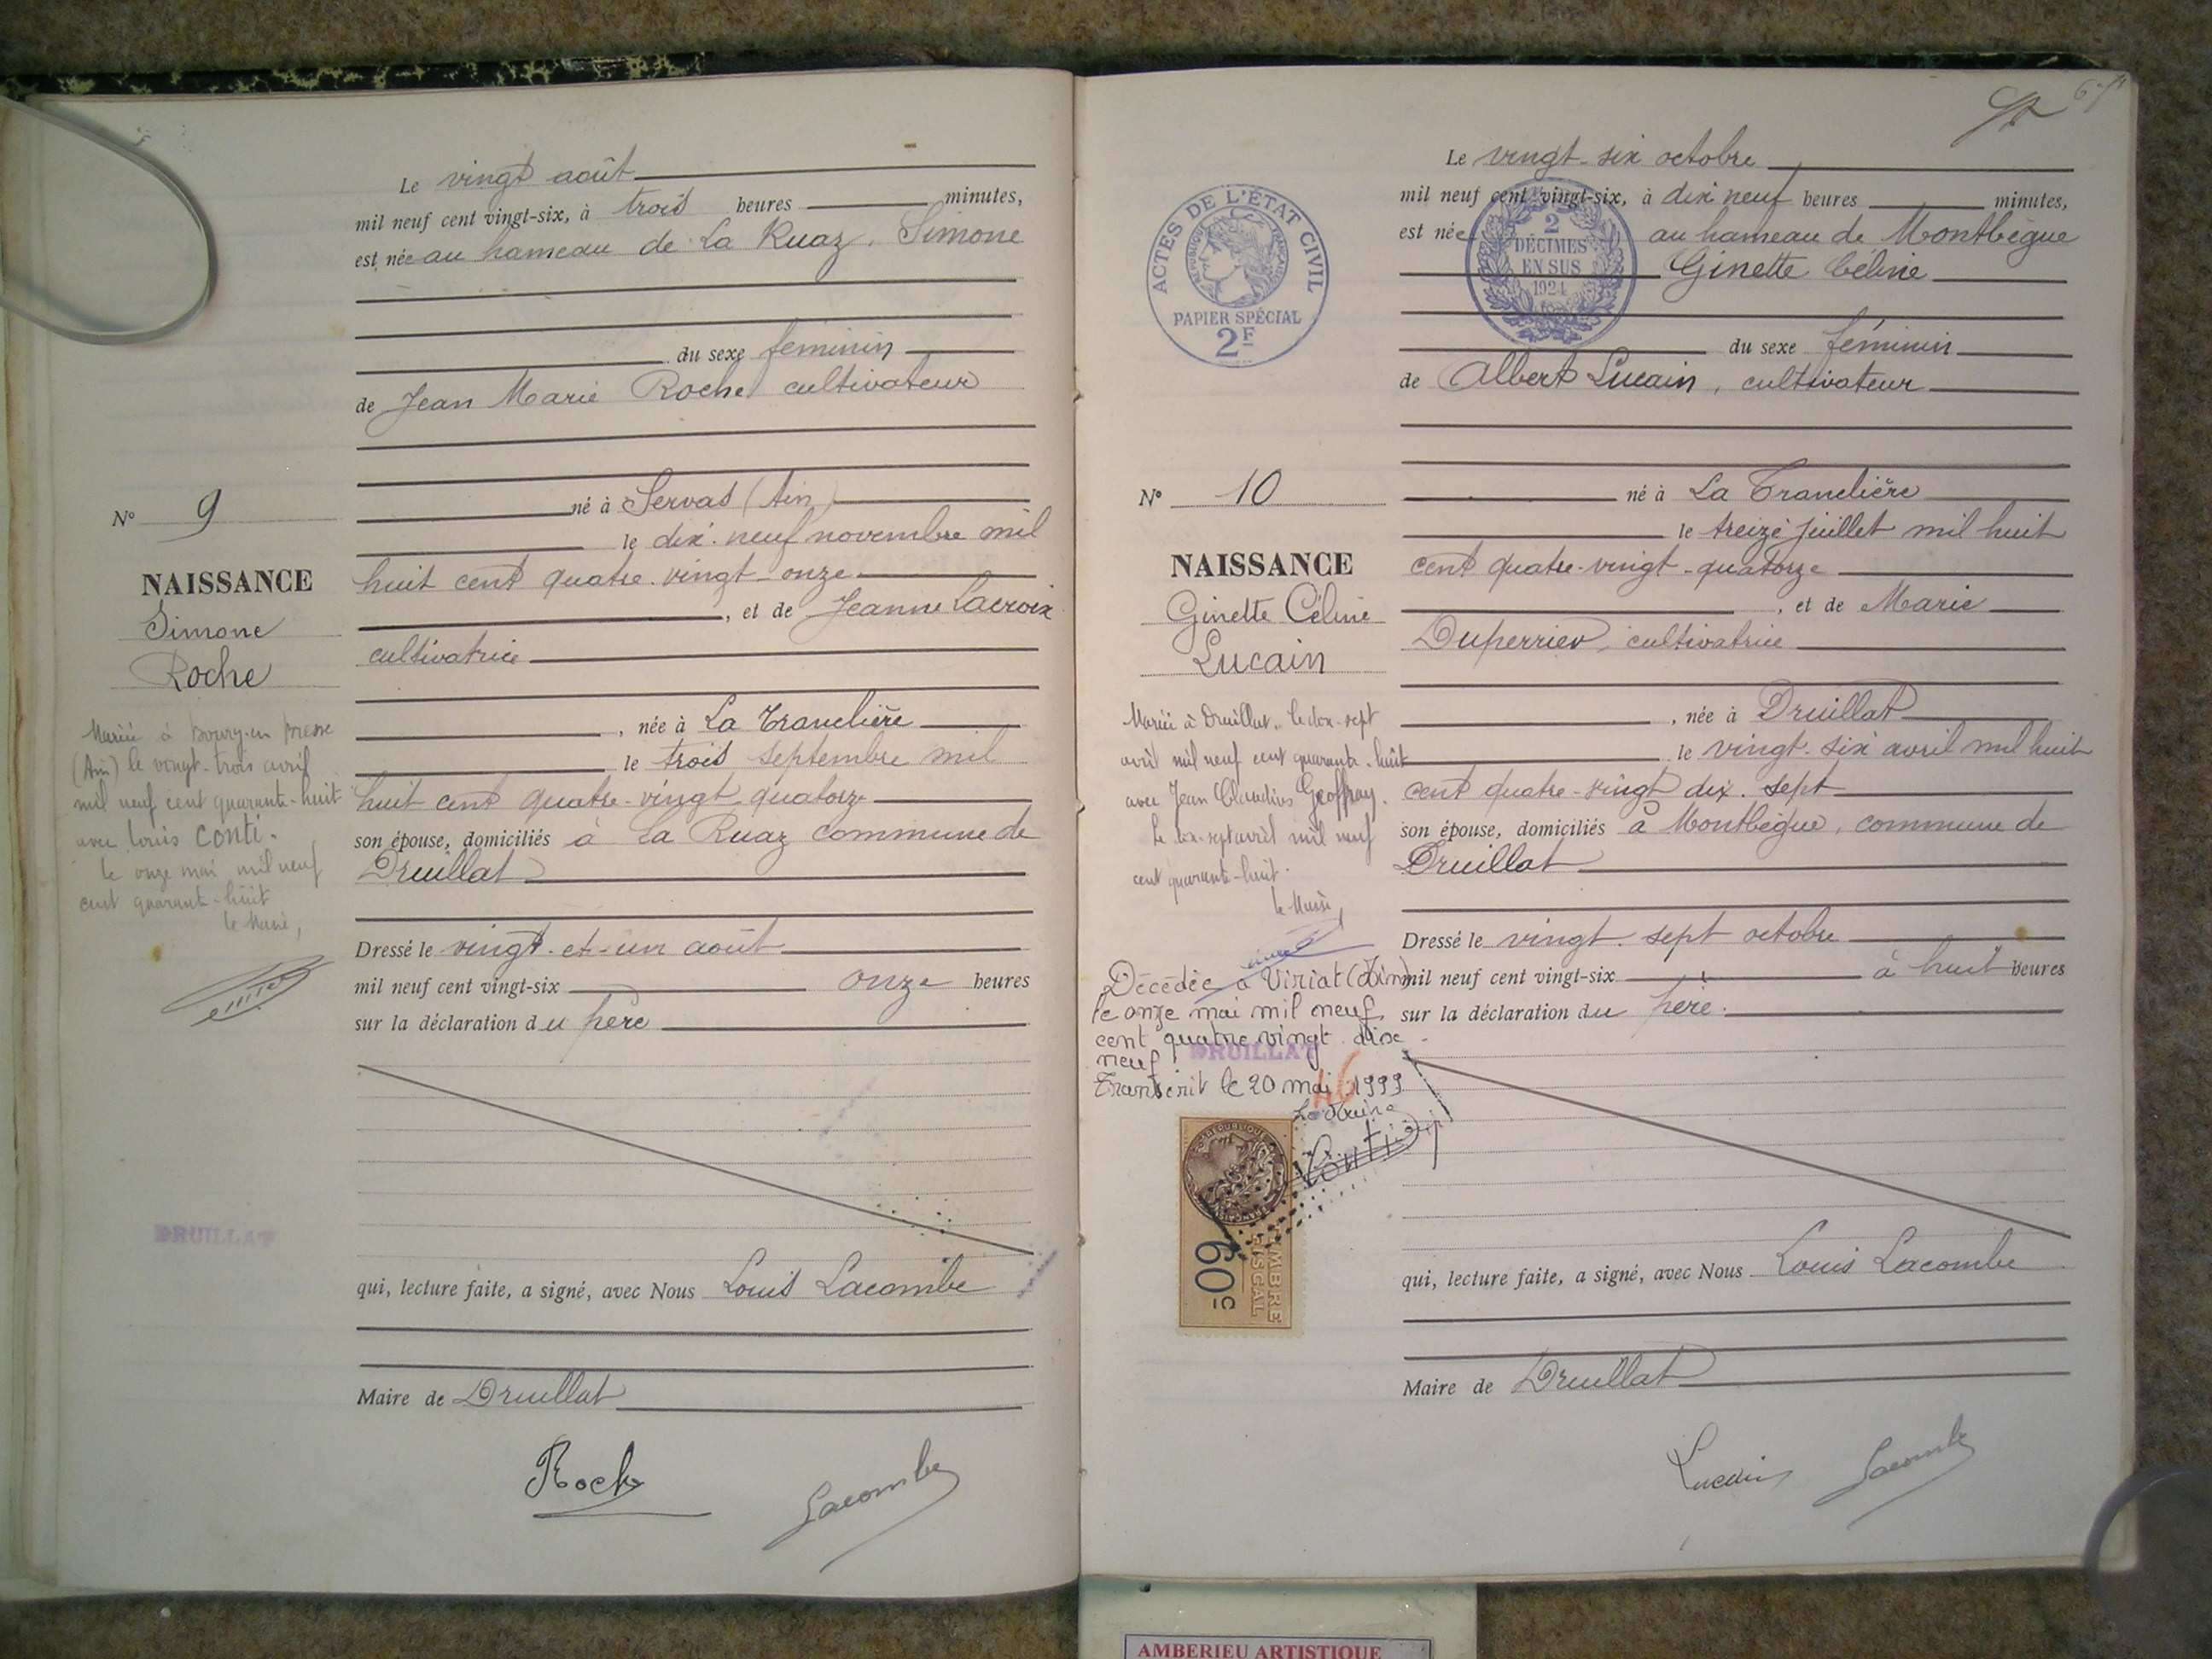 Le vingt août
mil neuf cent vingt-six, à trois heures minutes,
est née au hameau de La Ruaz, Simone
du sexe féminin
de Jean Marie Roche cultivateur
né à Servas (Ain)
N° 9
le dix-neuf novembre mil
NAISSANCE
Simone
Roche
huit cent quatre-vingt-onze
, et de Jeanne Lacroix
cultivatrice
, née à La Tranclière
le trois septembre mil
huit cent quatre-vingt quatorze
son épouse, domiciliés à La Ruaz commune de
Druillat
Mariée à Bourg-en-Bresse
(Ain) le vingt-trois avril
mil neuf cent quarante-huit
avec Louis CONTI.
le onze mai mil neuf
cent quarante-huit
le Maire,
Dressé le vingt-et-un août
mil neuf cent vingt-six onze heures
sur la déclaration du père
DRUILLAT
qui, lecture faite, a signé, avec Nous Louis Lacombe
Maire de Druillat
Roche
Lacombe
Le vingt-six octobre
mil neuf cent vingt-six, à dix neuf heures minutes,
est née au hameau de Montbègue
Ginette Céline
ACTES DE L'ÉTAT CIVIL
RÉPUBLIQUE FRANÇAISE
PAPIER SPÉCIAL
2F
2
DÉCIMES
EN SUS
1924
du sexe féminin
de Albert Lucain, cultivateur
N° 10
né à La Tranclière
le treize juillet mil huit
NAISSANCE
Ginette Céline
Lucain
cent quatre-vingt-quatorze
, et de Marie
Duperrier, cultivatrice
, née à Druillat
le vingt-six avril mil huit
cent quatre-vingt dix-sept
son épouse, domiciliés à Montbègue, commune de
Druillat
Mariée à Druillat, le dix-sept
avril mil neuf cent quarante-huit
avec Jean Claudius Geoffray.
le dix-sept avril mil neuf
cent quarante-huit.
le Maire,
Décédée à Viriat (Ain)
le onze mai mil neuf
cent quatre vingt dix
neuf
DRUILLAT
Transcrit le 20 mai 1999
Le Maire
16
TIMBRE
FISCAL
60c
Dressé le vingt-sept octobre
mil neuf cent vingt-six à huit heures
sur la déclaration du père.
qui, lecture faite, a signé, avec Nous Louis Lacombe
Maire de Druillat
Lucain
Lacombe
AMBERIEU ARTISTIQUE